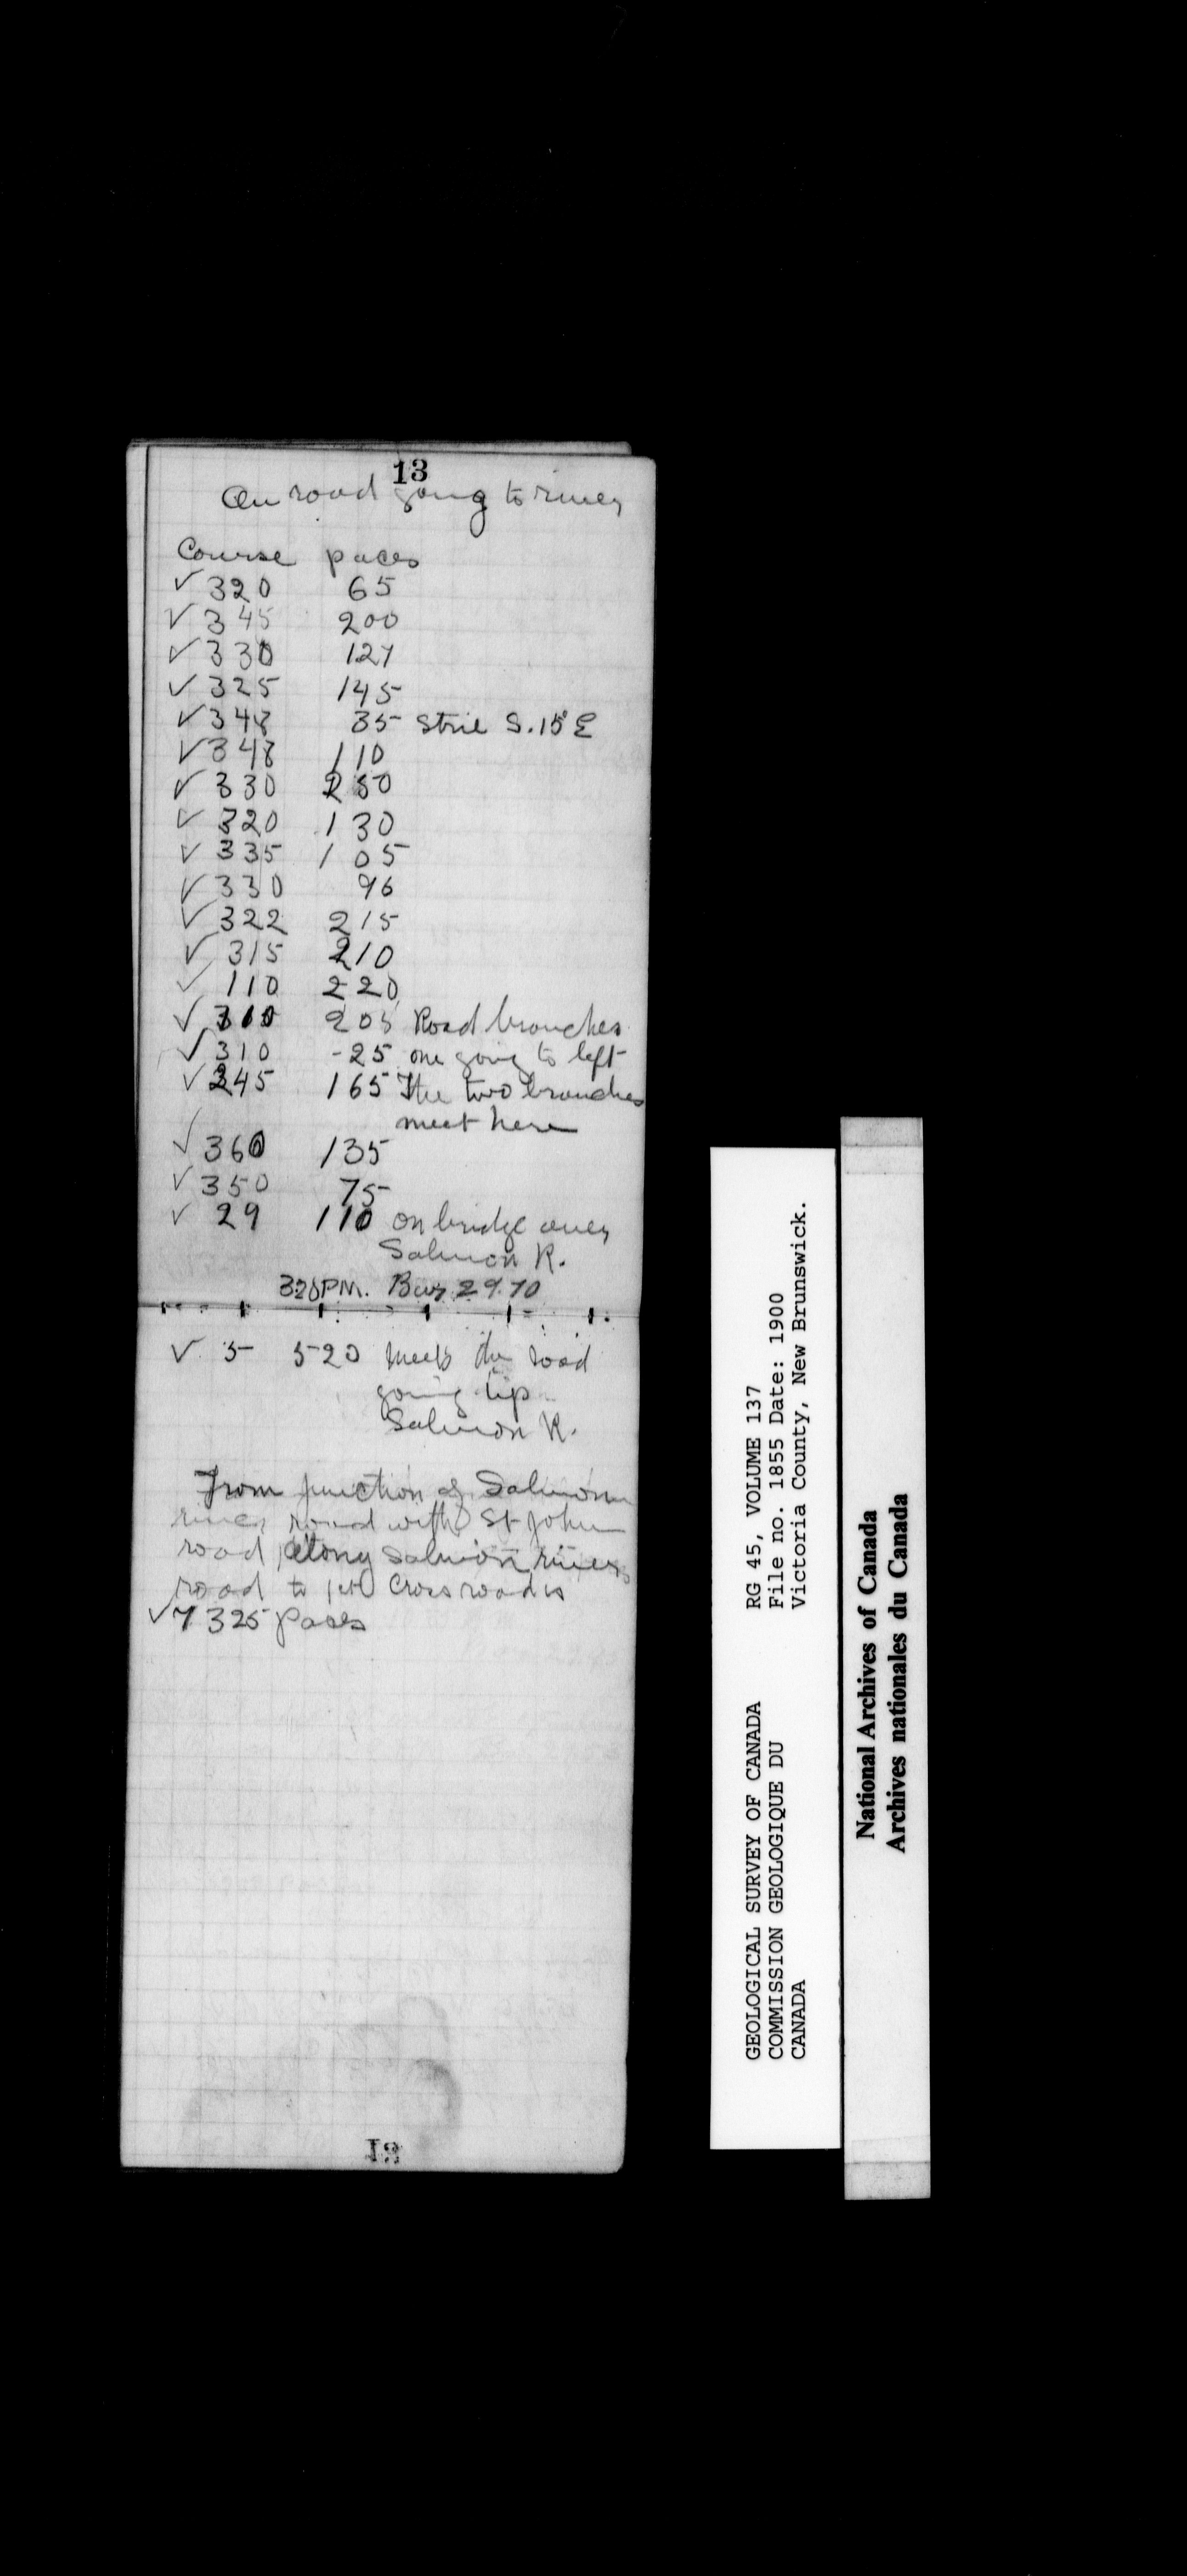 13
On road going to river
Course paces
✓ 320 65
✓ 345 200
✓ 330 127
✓ 325 145
✓ 348 35 Striæ S. 15° E
✓ 348 110
✓ 330 250
✓ 320 130
✓ 335 105
✓ 330 96
✓ 322 215
✓ 315 210
✓ 110 220
✓ 310 205 Road branches
✓ 310 -25 one going to left
✓ 345 165 The two branches
meet here
✓ 360 135
✓ 350 75
✓ 29 110 on bridge over
Salmon R.
320 PM. Bar 29.70
✓ 5 520 meets the road
going up
Salmon R.
From junction of Salmon
river road with St John
road along Salmon river
road to 1st Cross road is
✓ 7325 paces
GEOLOGICAL SURVEY OF CANADA
COMMISSION GEOLOGIQUE DU
CANADA
RG 45, VOLUME 137
File no. 1855 Date: 1900
Victoria County, New Brunswick.
National Archives of Canada
Archives nationales du Canada